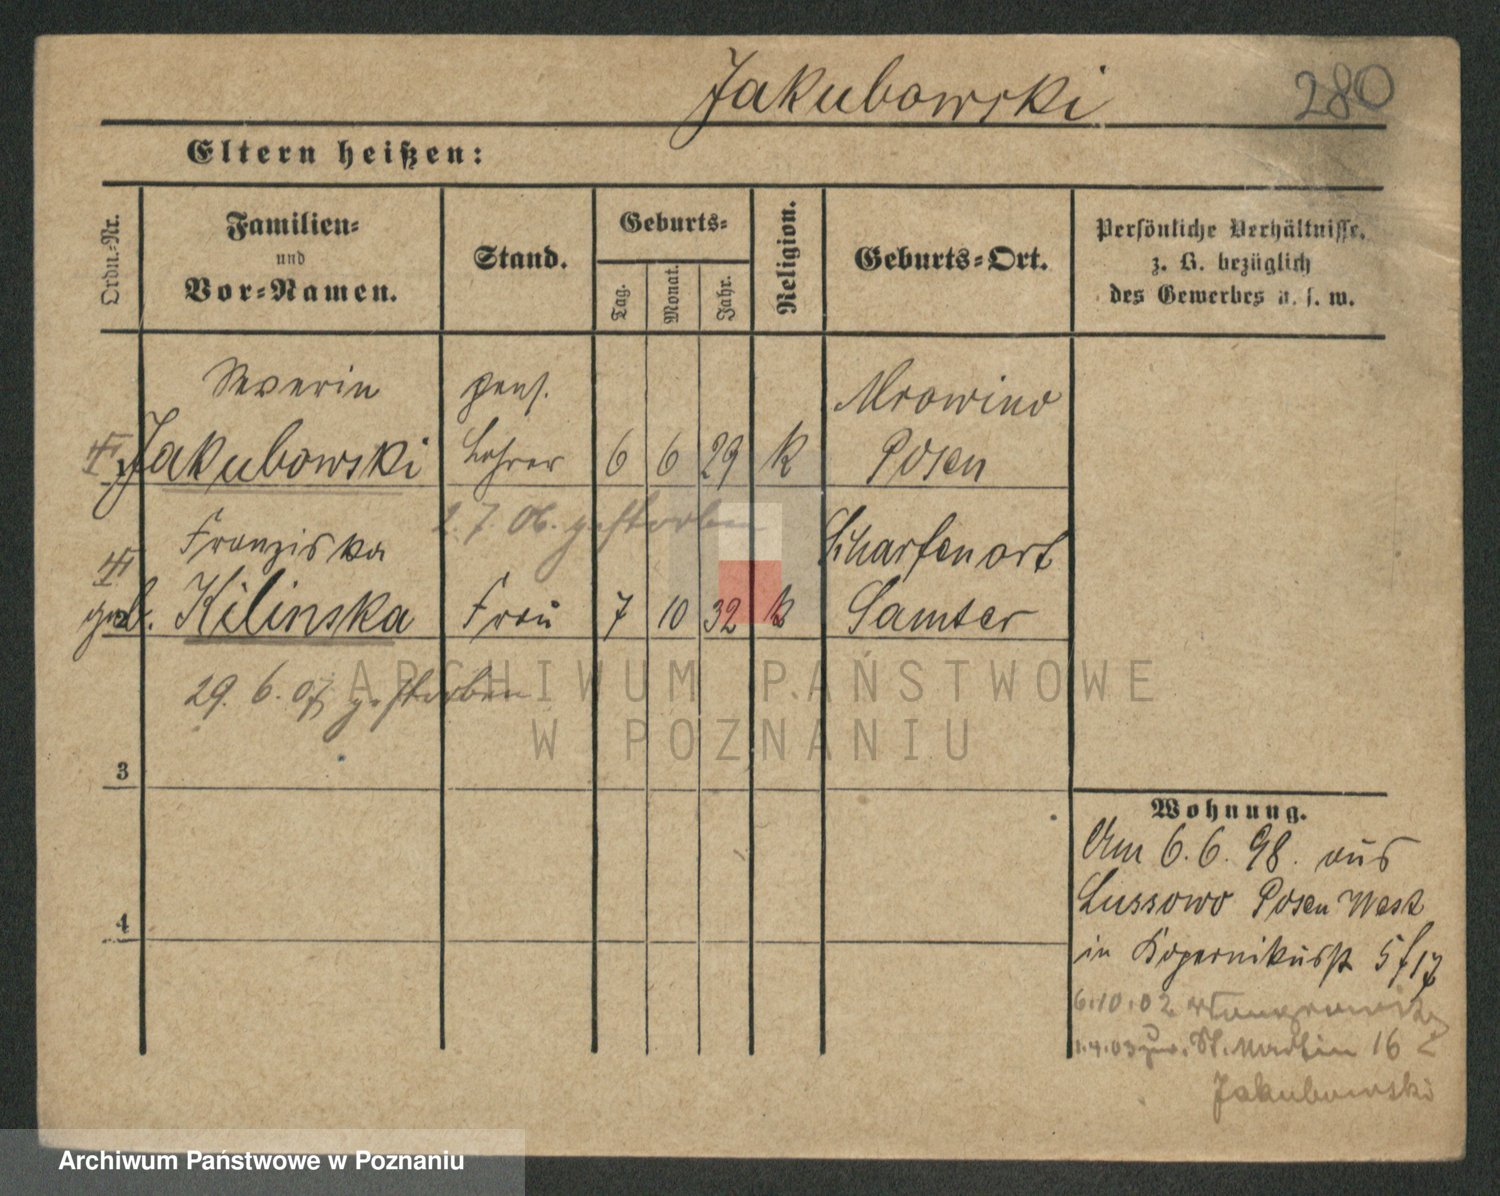 Jakubowski 280
Eltern heißen:
Ordn.-Nr.
Familien-
und
Vor-Namen.
Stand.
Geburts-
Tag.
Monat.
Jahr.
Religion.
Geburts-Ort.
Persönliche Verhältnisse,
z. B. bezüglich
des Gewerbes u. s. w.
Severin pens. Mrowino
Jakubowski Lehrer 6 6 29 k Posen
2.7.06. gestorben
Franziska Scharfenort
geb. Kilinska Frau 7 10 32 k Samter
29.6.07 gestorben
3
4
Wohnung.
Am 6.6.98. aus
Lussowo Posen West
in Kopernikusst 5
6.10.02 Wongrowitz
1.4.03 St. Martin 16
Jakubowski
ARCHIWUM PAŃSTWOWE
W POZNANIU
Archiwum Państwowe w Poznaniu